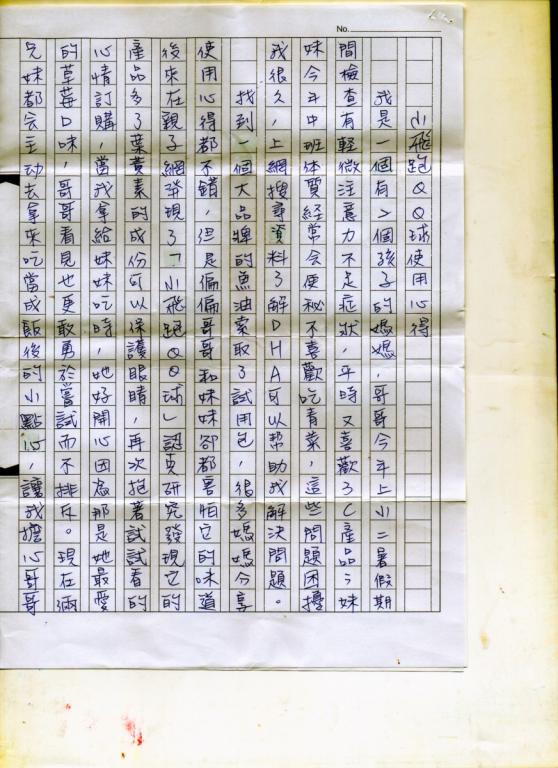 No.
小飛跑QQ球使用心得
我是一個有2個孩子的媽媽,哥哥今年上小二暑假期
間檢查有輕微注意力不足症狀,平時又喜歡3C產品;妹
妹今年中班体質経常会便秘不喜歡吃青菜,這些問題困擾
我很久,上網搜尋資料了解DHA可以幫助我解決問題。
找到一個大品牌的魚油索取了試用包,很多媽媽分享
使用心得都不錯,但是偏偏哥哥和妹妹卻都害怕它的味道
後來在親子網發現了「小飛跑QQ球」認真研究發現它的
產品多了葉黃素的成份可以保護眼睛,再次抱著試試看的
心情訂購,當我拿給妹妹吃時,她好開心因為那是她最愛
的草莓口味,哥哥看見也更敢勇於嘗試而不排斥。現在兩
兄妹都会主动去拿來吃當成飯後的小點心,讓我擔心哥哥